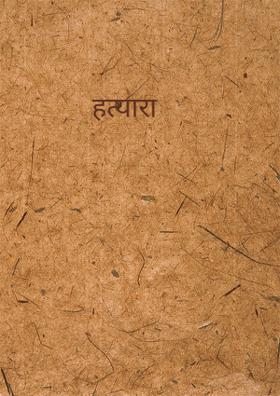 हत्यारा